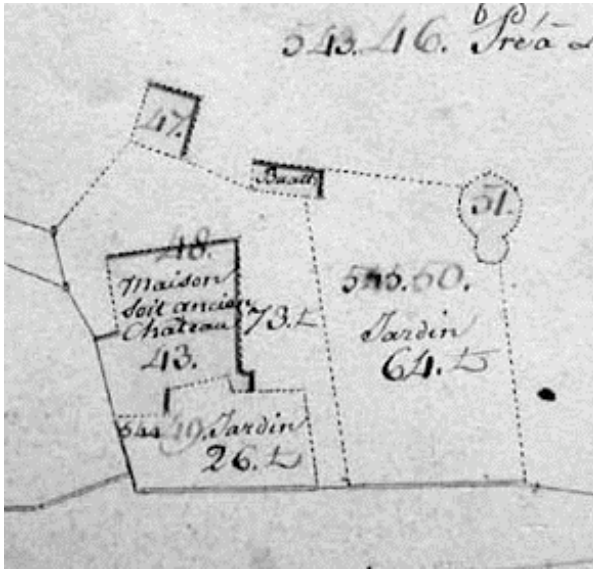 543. 46. Pré à
47.
51.
48.
Maison
soit ancien
Chateau
73. t
43.
545. 50.
Jardin
64. t
544 49. Jardin
26. t